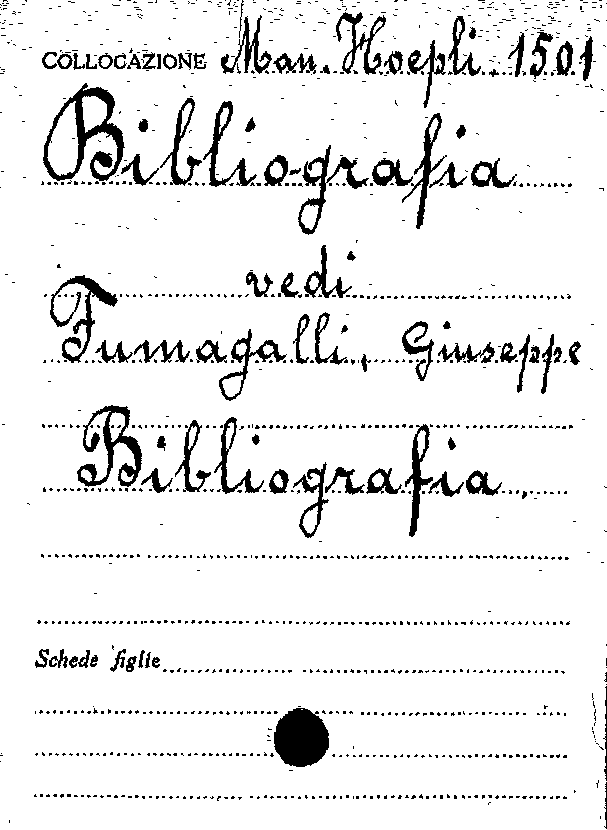 COLLOCAZIONE Man. Hoepli. 1501
Bibliografia
vedi
Fumagalli, Giuseppe
Bibliografia.
Schede figlie